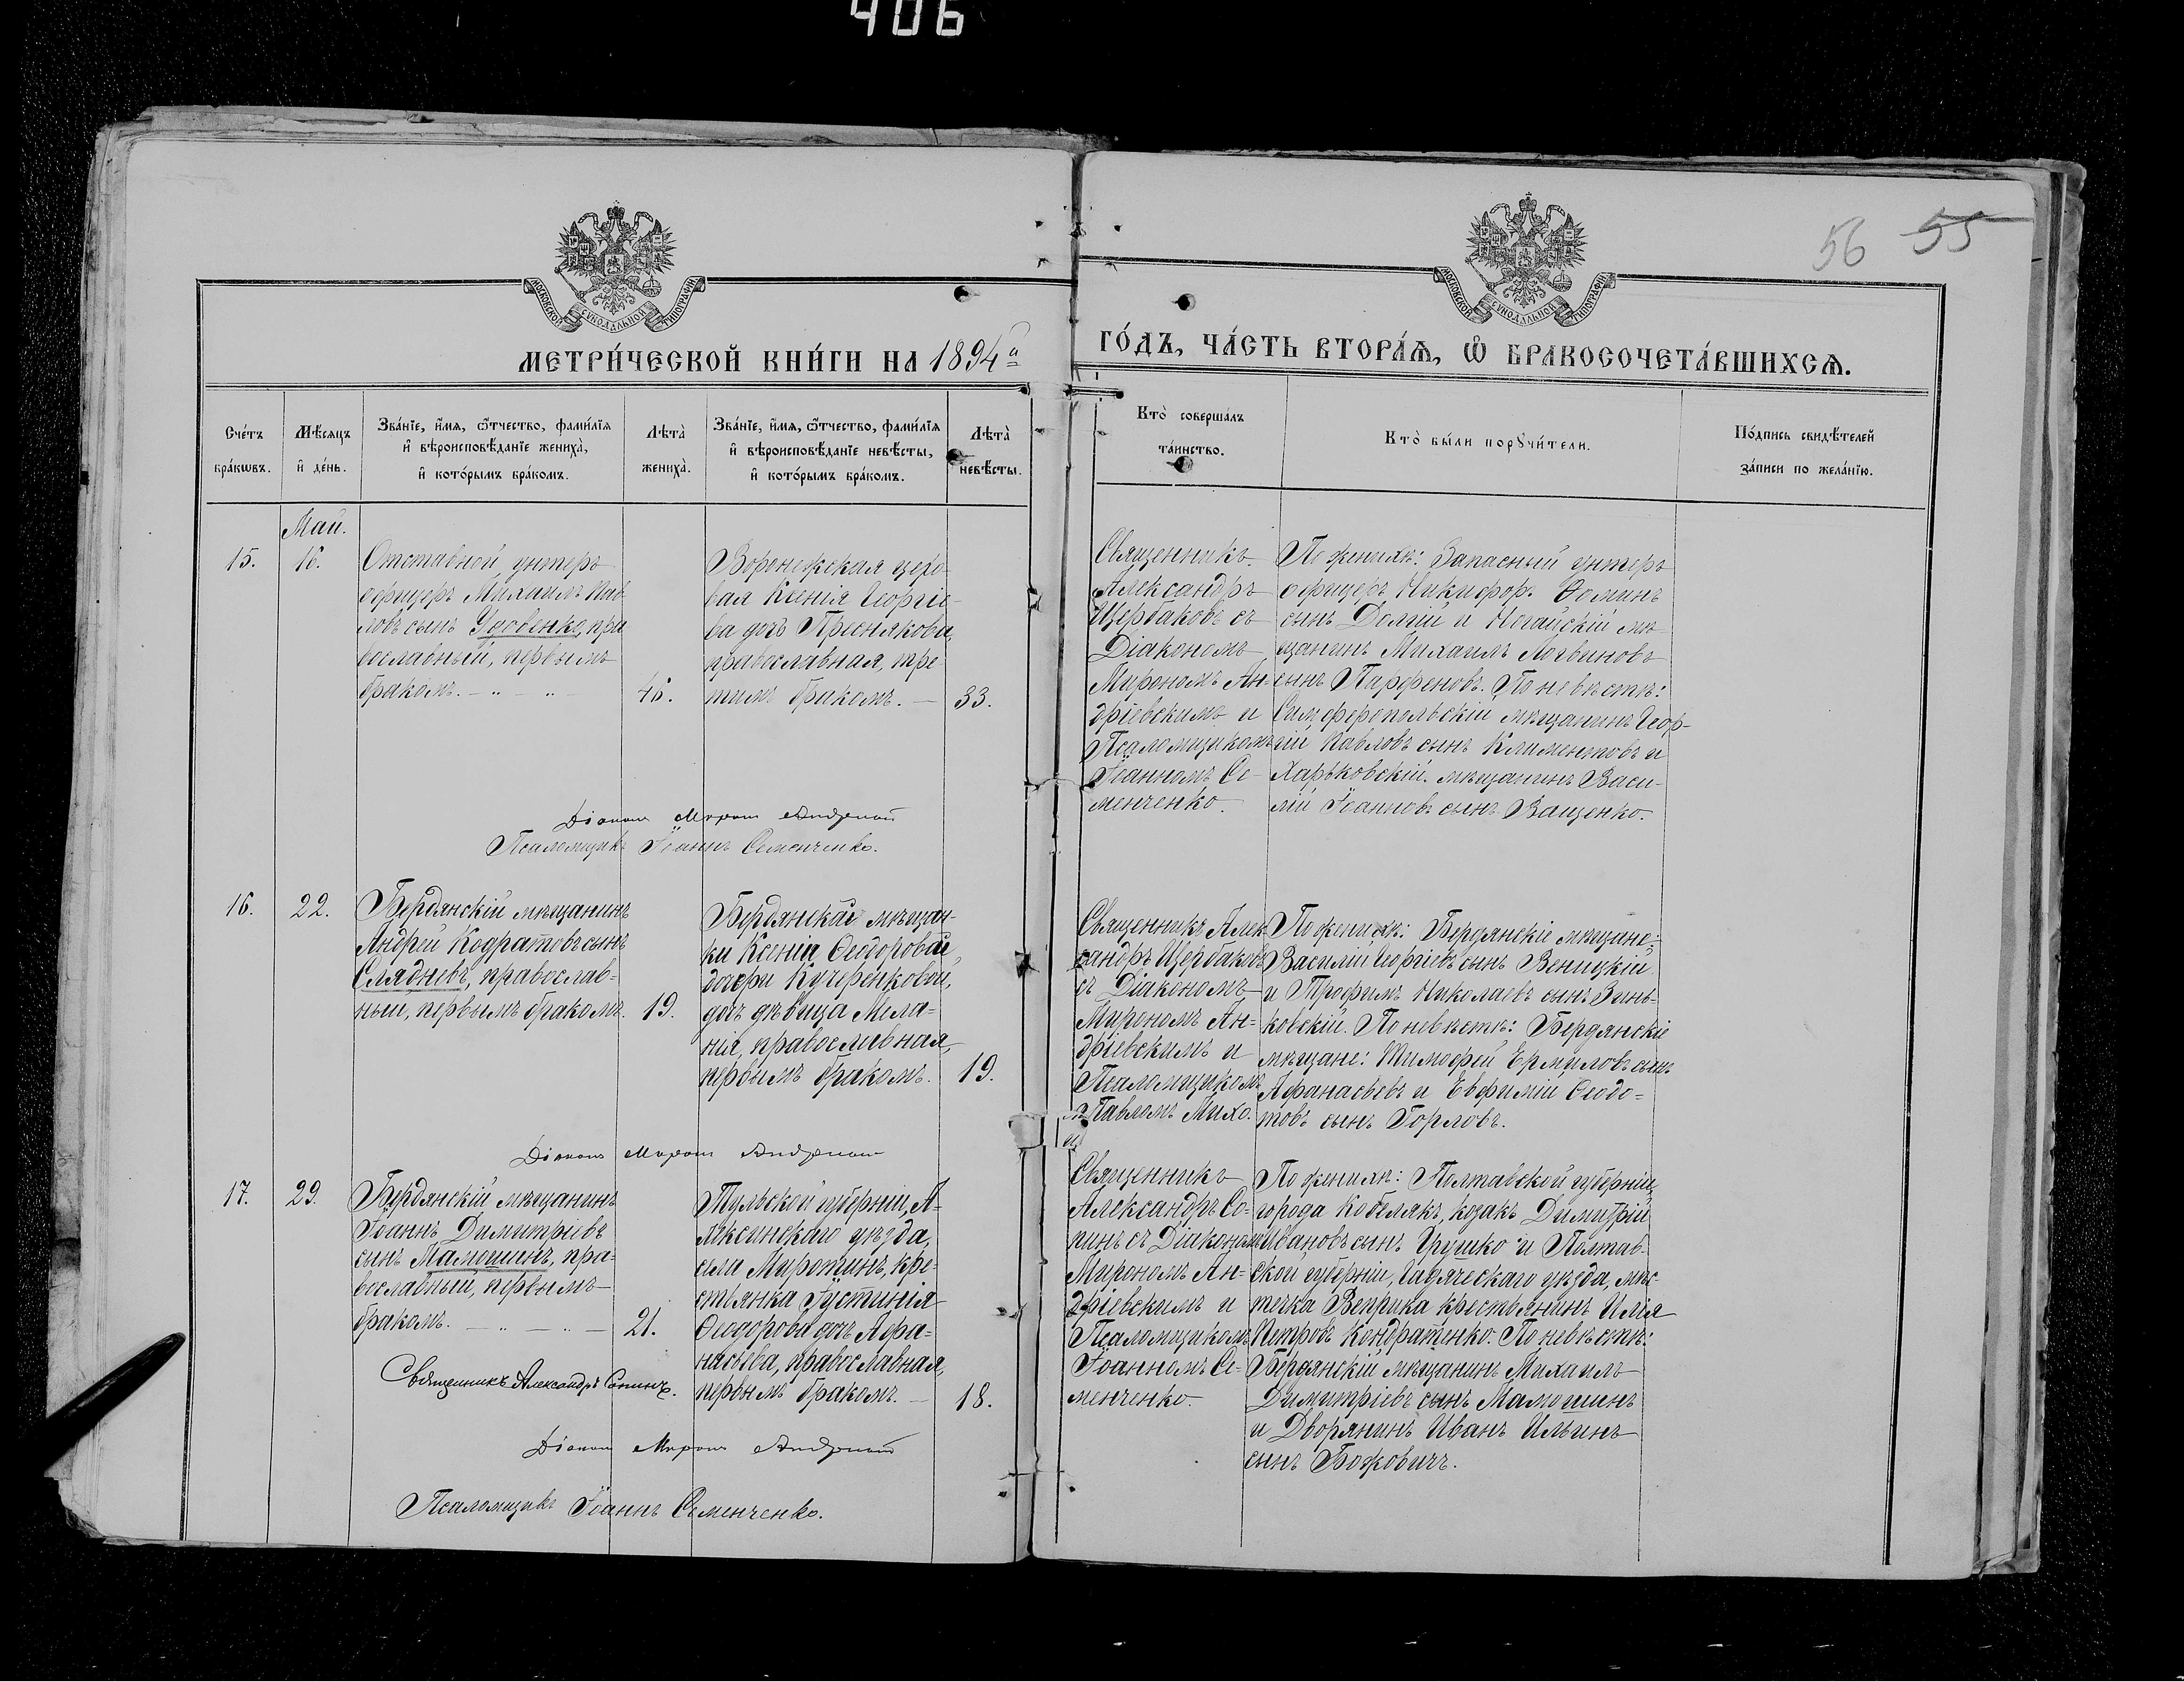 406
56 55
МОСКОВСКОЙ СѴНОДАЛЬНОЙ ТИПОГРАФІИ
МОСКОВСКОЙ СѴНОДАЛЬНОЙ ТИПОГРАФІИ
МЕТРИ́ЧЕСКОЙ КНИ́ГИ НА 1894й
ГО́ДЪ, ЧА́СТЬ ВТОРА́Ѧ, Ѡ҆ БРАКОСОЧЕТА́ВШИХСѦ.
Сче́тъ бра́кѡвъ.
Мѣ́сяцъ и҆ де́нь.
Зва́нїе, и҆́мѧ, ѻ҆́тчество, фами́лїѧ
и҆ вѣроисповѣ́данїе жениха̀,
и҆ кото́рымъ бра́комъ.
Лѣта̀ жениха̀.
Зва́нїе, и҆́мѧ, ѻ҆́тчество, фами́лїѧ
и҆ вѣроисповѣ́данїе невѣ́сты,
и҆ кото́рымъ бра́комъ.
Лѣта̀ невѣ́сты.
Кто̀ соверша́лъ
та́инство.
Кто̀ бы́ли порꙋчи́тели.
По́дпись свидѣ́телей
за́писи по жела́нїю.
Май.
15.
16.
Отставной унтеръ
офицеръ Михаилъ Пав-
ловъ сынъ Удовенко, пра
вославный, первымъ
бракомъ. — „ — „ —
46.
Воронежская цехо-
вая Ксенія Георгіе-
ва дочь Преснякова,
православная, тре-
тимъ бракомъ. —
33.
Священникъ
Александръ
Щербаковъ съ
Діакономъ
Мирономъ Ан-
дріевскимъ и
Псаломщикомъ
Іоанномъ Се-
менченко.
По женихѣ: Запасный унтеръ
офицеръ Никифоръ Фоминъ
сынъ Долгій и Ногайскій мѣ
щанинъ Михаилъ Логвиновъ
сынъ Парфеновъ. По невѣстѣ:
Симферопольскій мѣщанинъ Геор-
гій Павловъ сынъ Климентовъ и
Харьковскій мѣщанинъ Васи-
лій Іоанновъ сынъ Ващенко.
Діаконъ Миронъ Андріевскій
Псаломщикъ Іоаннъ Семенченко.
16.
22.
Бердянскій мѣщанинъ
Андрей Кодратовъ сынъ
Слядневъ, православ-
ный, первымъ бракомъ.
19.
Бердянской мѣщан-
ки Ксеніи Ѳеодоровой
дочери Кучеренковой,
дочь дѣвица Мела-
нія, православная,
первымъ бракомъ.
19.
Священникъ Алек-
сандръ Щербаковъ
съ Діакономъ
Мирономъ Ан-
дріевскимъ и
Псаломщикомъ
Павломъ Михо.
По женихѣ: Бердянскіе мѣщане:
Василій Георгіевъ сынъ Веницкій
и Трофимъ Николаевъ сынъ Зинь-
ковскій. По невѣстѣ: Бердянскіе
мѣщане: Тимофей Ермиловъ сынъ
Афанасьевъ и Евфимій Ѳеодо-
товъ сынъ Горловъ.
Діаконъ Миронъ Андріевскій
17.
29.
Бердянскій мѣщанинъ
Іоаннъ Димитріевъ
сынъ Мамошинъ, пра-
вославный, первымъ
бракомъ. — „ — „ —
21.
Тульской губерніи, А-
лексинскаго уѣзда,
села Миротинъ, кре-
стьянка Іустинія
Ѳеодорова дочь Афа-
насьева, православная,
первымъ бракомъ. —
18.
Священникъ
Александръ Со-
нинъ съ Діакономъ
Мирономъ Ан-
дріевскимъ и
Псаломщикомъ
Іоанномъ Се-
менченко.
По женихѣ: Полтавской губерніи,
города Кобелякъ, козакъ Димитрій
Ивановъ сынъ Грушко и Полтав-
ской губерніи, Гадяческаго уѣзда, мѣс-
течка Веприка крестьянинъ Илія
Петровъ Кондратенко. По невѣстѣ:
Бердянскій мѣщанинъ Михаилъ
Димитріевъ сынъ Мамошинъ
и Дворянинъ Иванъ Ильинъ
сынъ Божовичъ.
Священникъ Александръ Сонинъ.
Діаконъ Миронъ Андріевскій
Псаломщикъ Іоаннъ Семенченко.